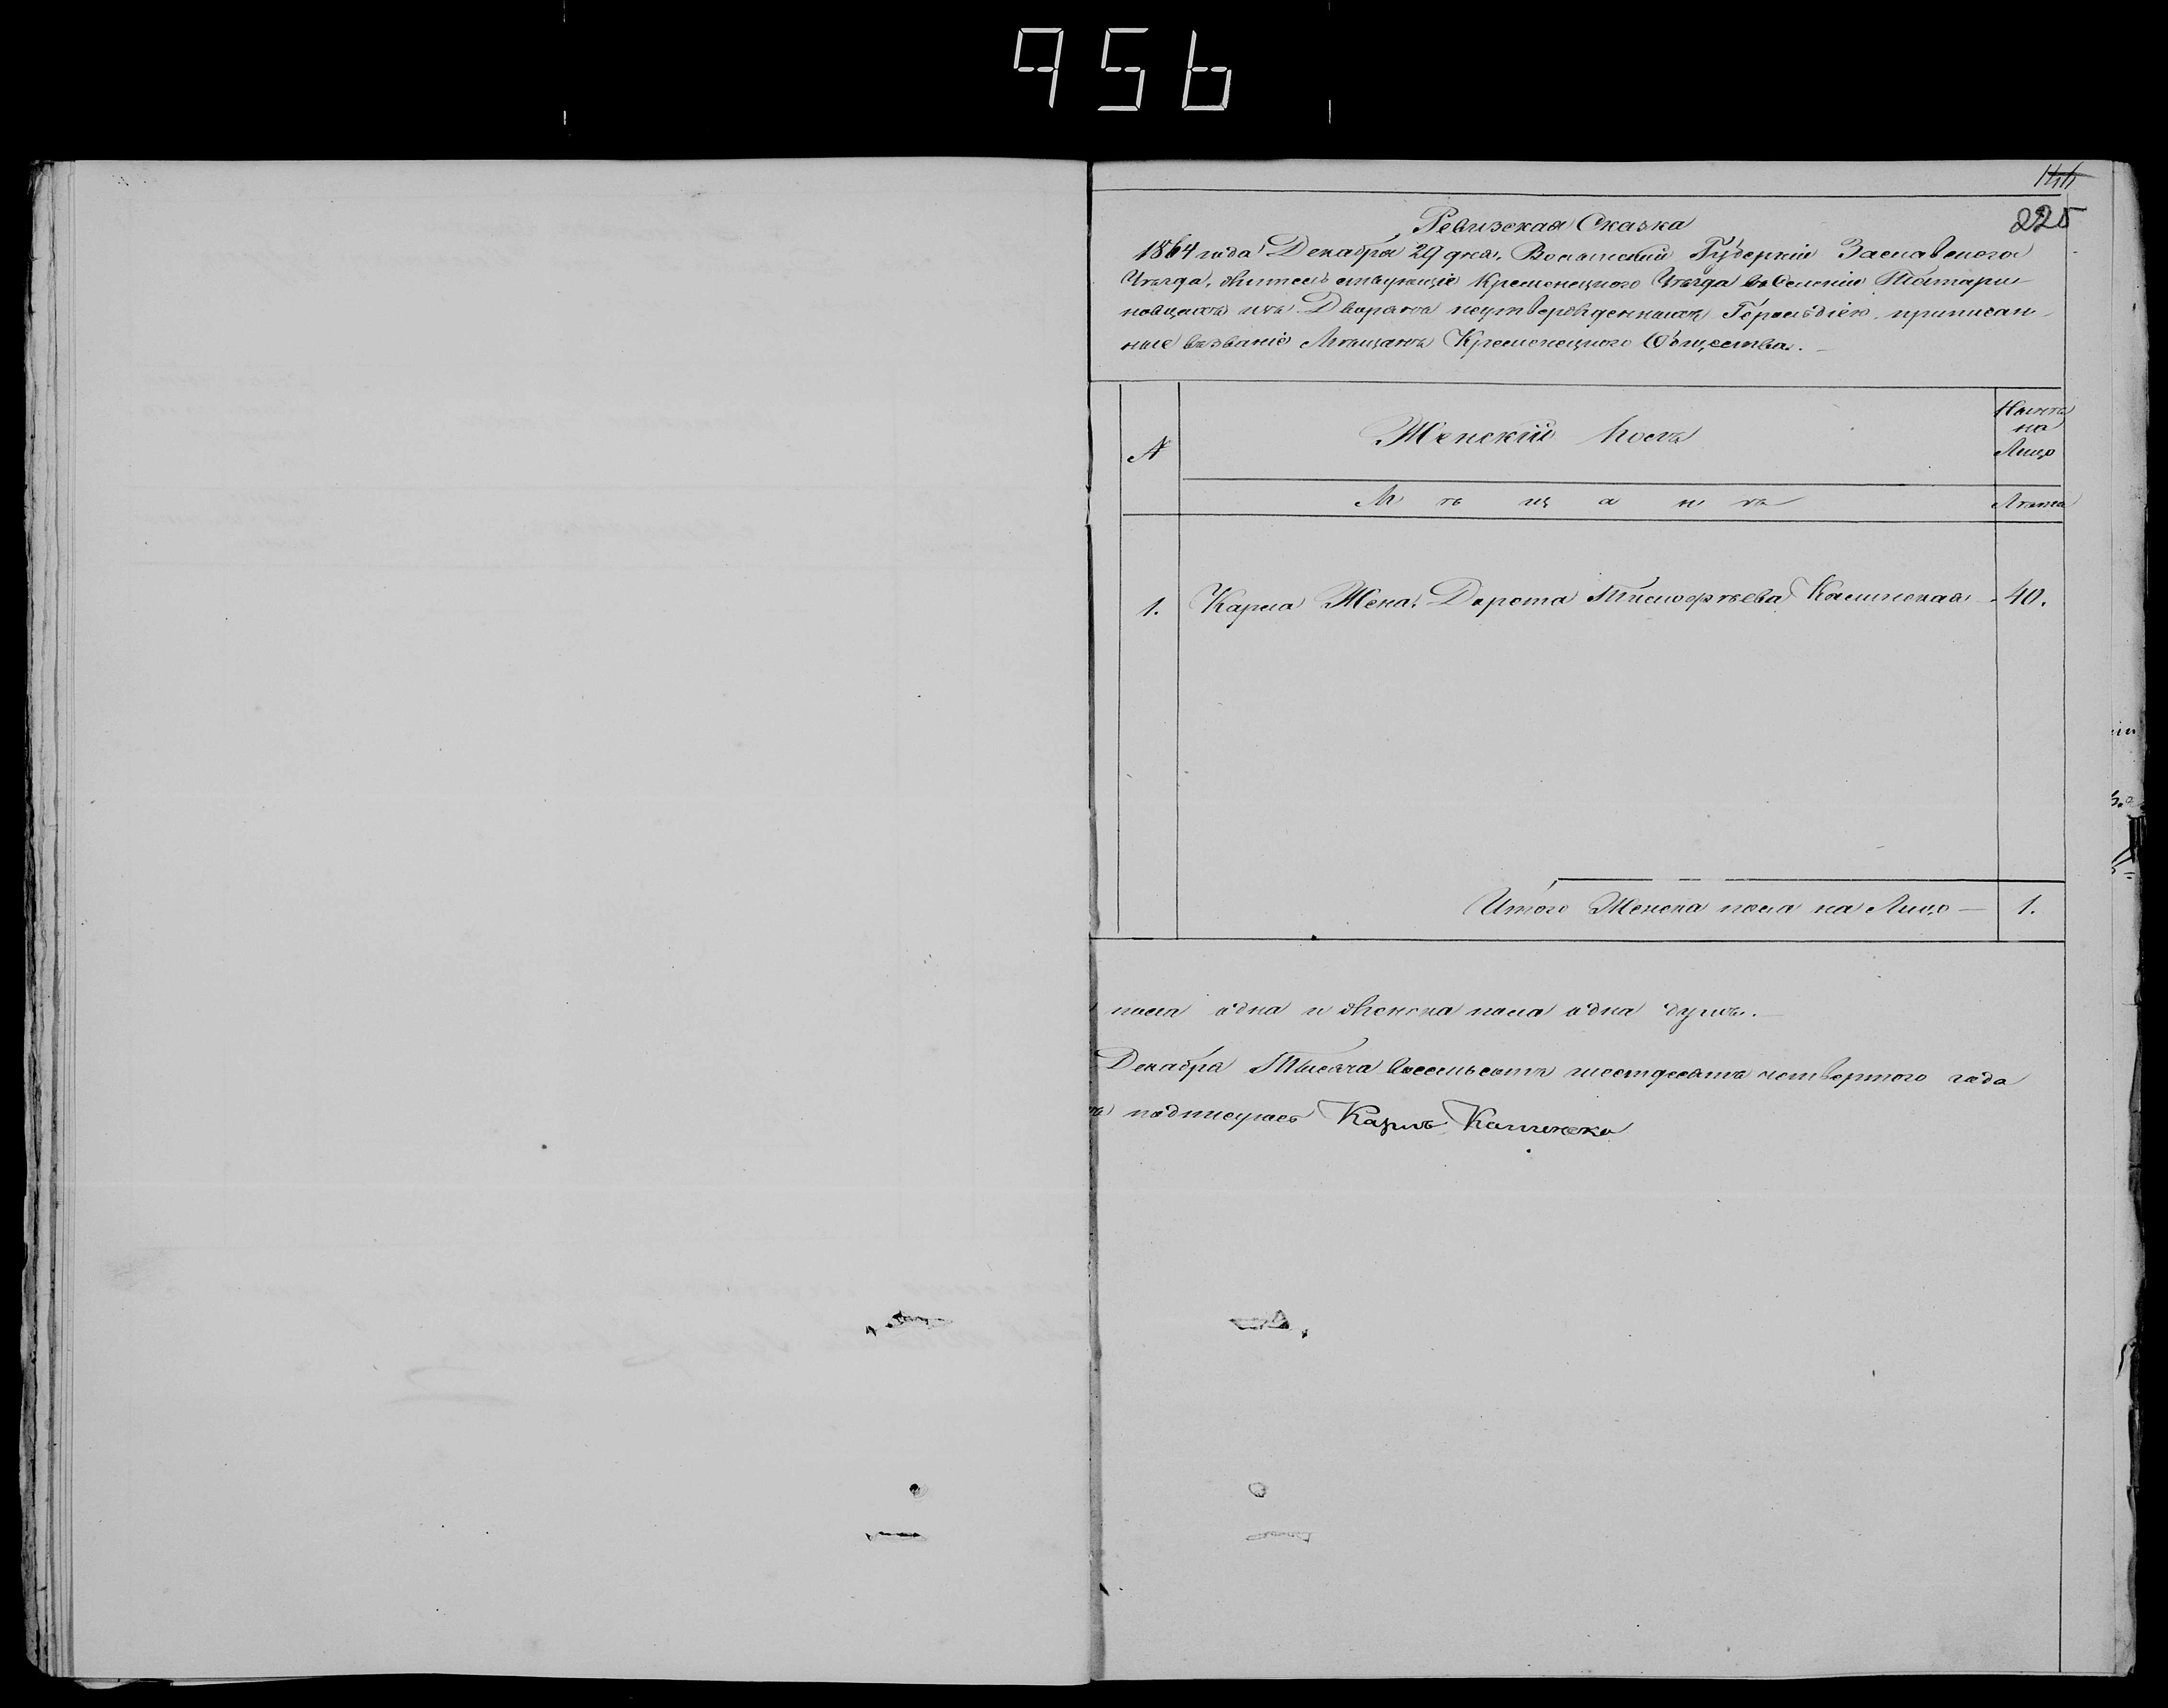 956
144
225
Ревизская Сказка
1864 года Декабря 29 дня, Волынской Губерніи Заславского
Уѣзда, жительствующіе Кременецкого Уѣзда въ Селеніи Татари-
новцахъ изъ Дворянъ неутвержденныхъ Герольдіею приписан-
ные въ званіе Мѣщанъ Кременецкого Общества.
№
Женскій Полъ
Нынѣ
на
Лицо
Мѣщанъ
Лѣта
1. Карла Жена Дорота Тимофѣева Калинская 40.
Итого Женска пола на Лицо — 1.
пола одна и женска пола одна душъ. —
Декабря Тысяча восемьсотъ шестдесятъ четвертого года
подписуюсь Карлъ